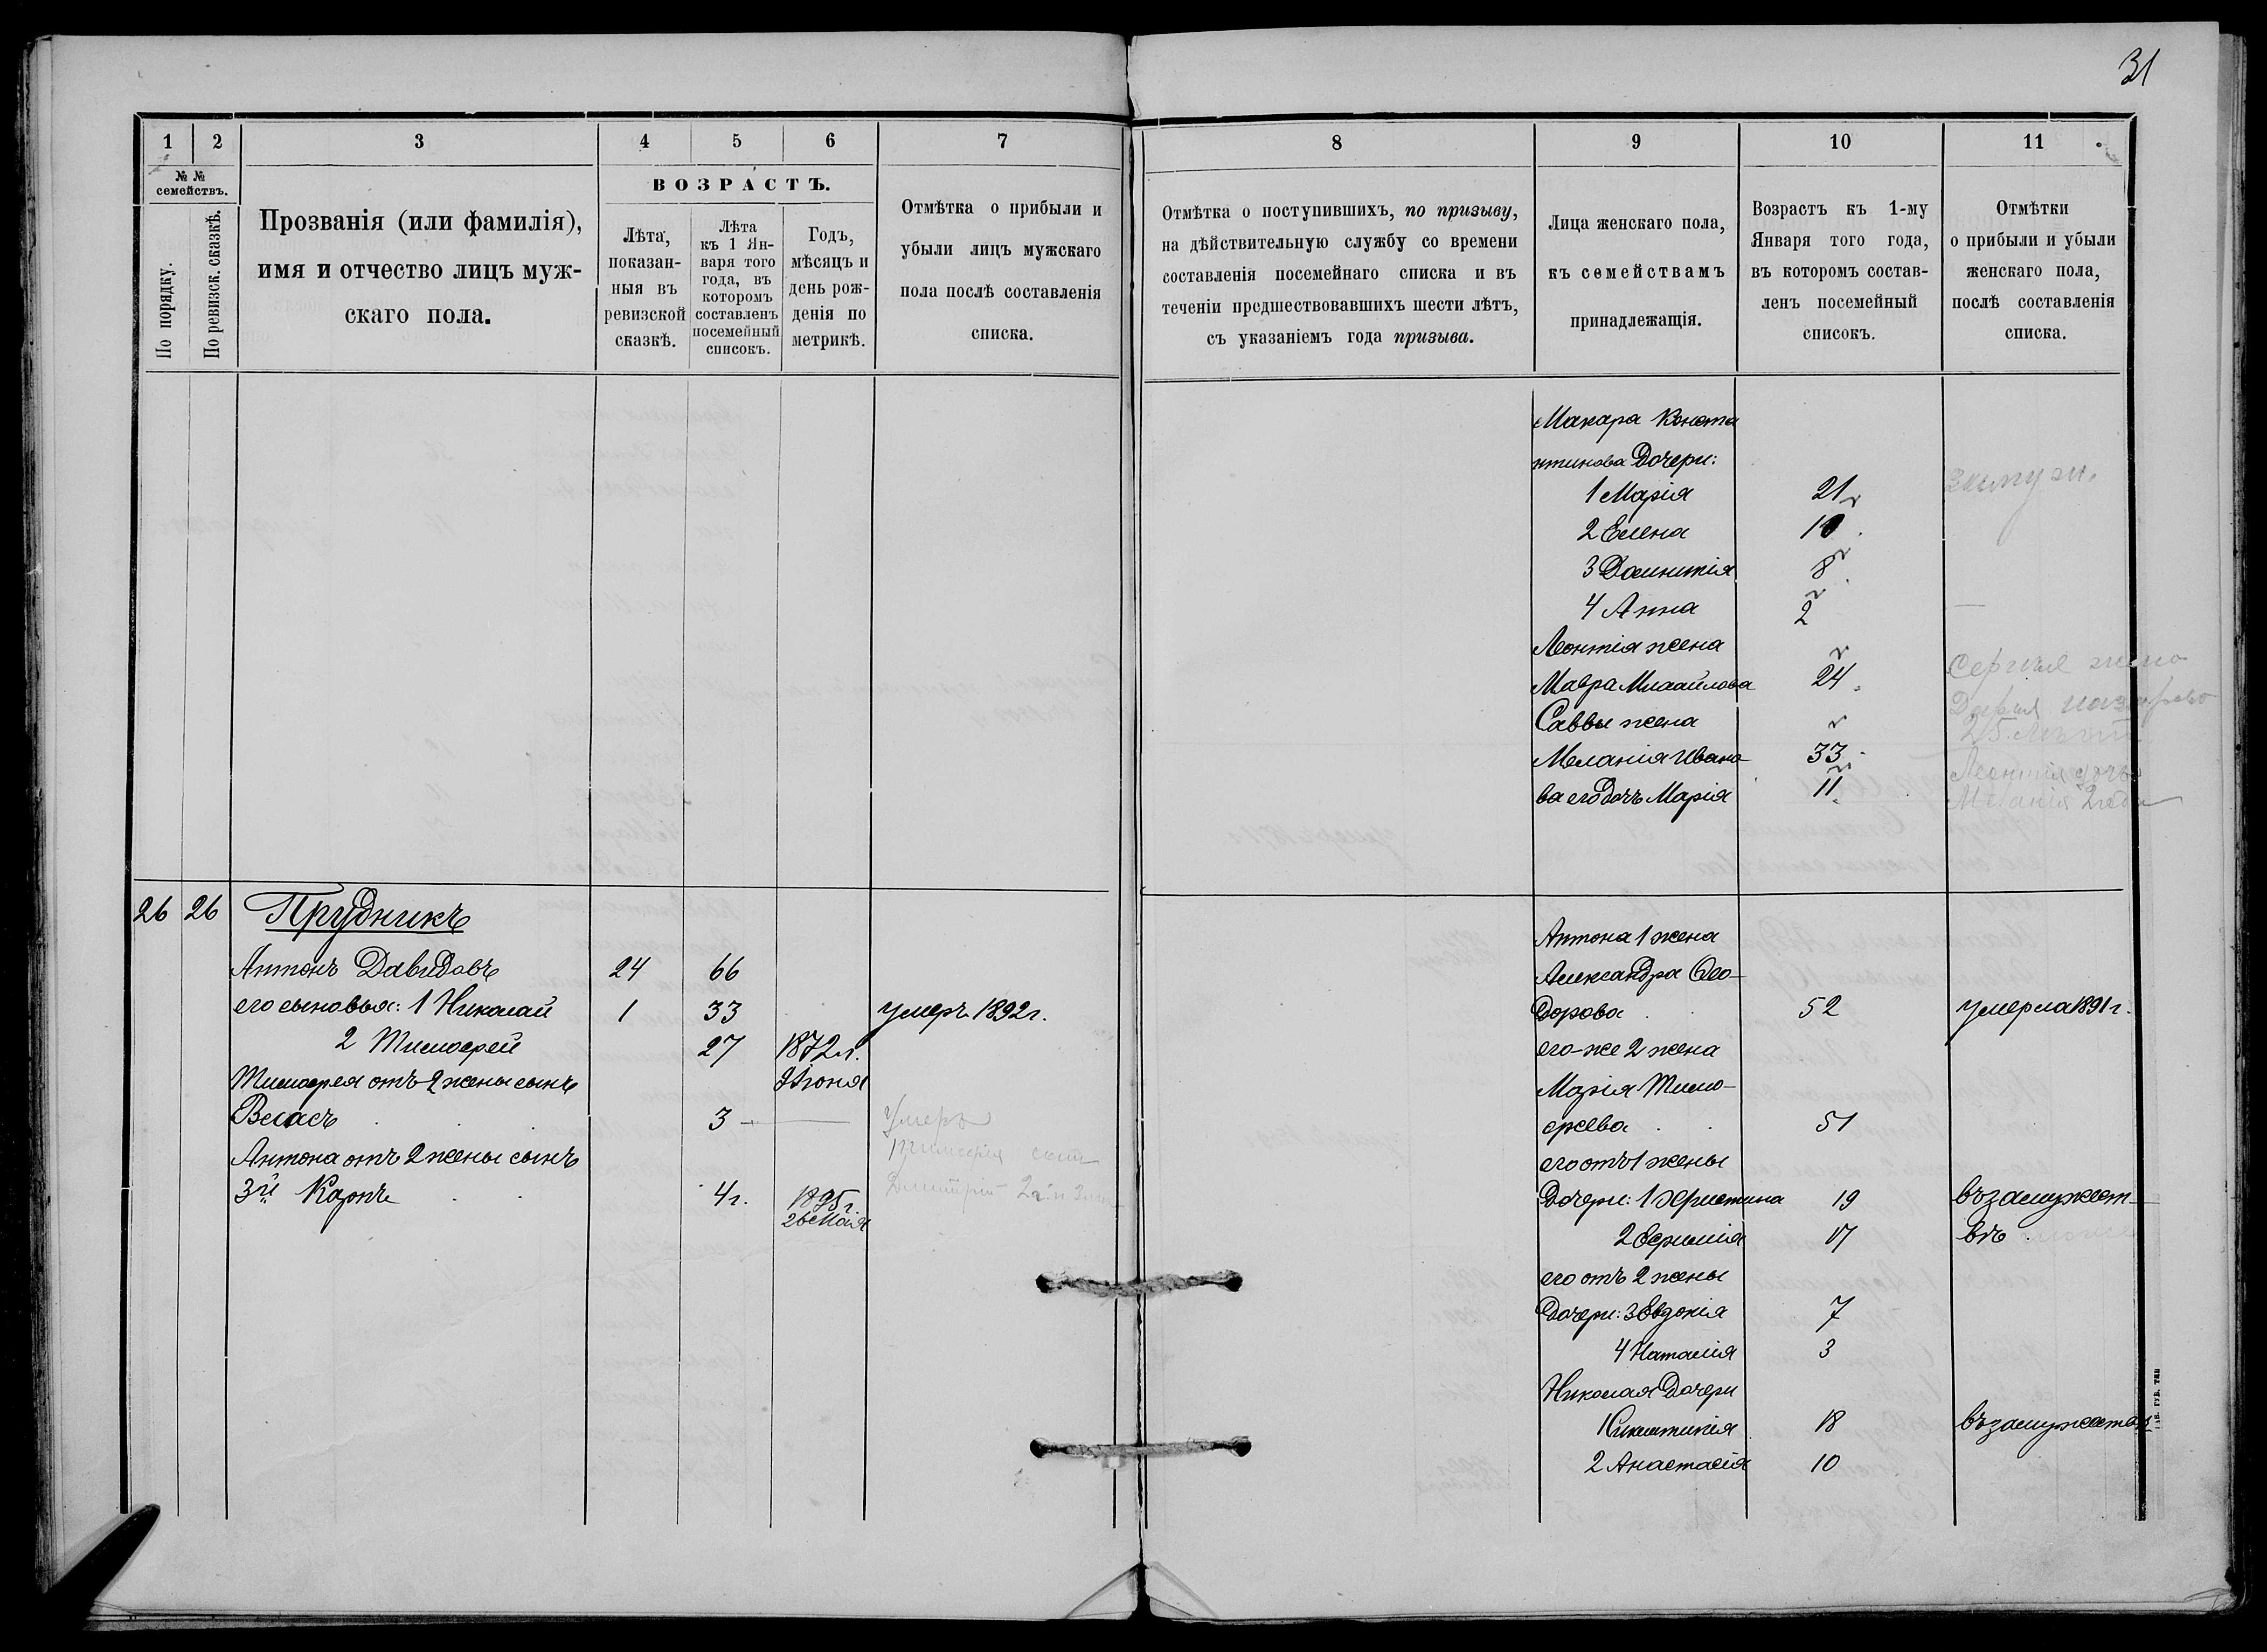 31
1 2 3 4 5 6 7
№ №
семействъ.
По порядку.
По ревизск. сказкѣ.
Прозванія (или фамилія),
имя и отчество лицъ муж-
скаго пола.
ВОЗРАСТЪ.
Лѣта,
показан-
ныя въ
ревизской
сказкѣ.
Лѣта
къ 1 Ян-
варя того
года, въ
которомъ
составленъ
посемейный
списокъ.
Годъ,
мѣсяцъ и
день рож-
денія по
метрикѣ.
Отмѣтка о прибыли и
убыли лицъ мужскаго
пола послѣ составленія
списка.
26 26 Прудникъ
Антонъ Давидовъ 24 66
его сыновья: 1 Николай 1 33 умеръ 1892 г.
2 Тимоѳей 27 1872 г.
Тимоѳея отъ 2 жены сынъ Іюня
Власъ 3 Умеръ
Антона отъ 2 жены сынъ Тимоѳея сынъ
3й Карпъ 4 г. 1895 г. Дмитрій
26 Мая
8 9 10 11
Отмѣтка о поступившихъ, по призыву,
на дѣйствительную службу со времени
составленія посемейнаго списка и въ
теченіи предшествовавшихъ шести лѣтъ,
съ указаніемъ года призыва.
Лица женскаго пола,
къ семействамъ
принадлежащія.
Возрастъ къ 1-му
Января того года,
въ которомъ состав-
ленъ посемейный
списокъ.
Отмѣтки
о прибыли и убыли
женскаго пола,
послѣ составленія
списка.
Макара Конста
нтинова дочери:
1 Марія 21 замуж.
2 Елена 10
3 Домникія 8
4 Анна 2 —
Леонтія жена
Мавра Михайлова 24 Сергія жена
Саввы жена Дарья Назарова
Меланія Ивано- 33 25 лѣтъ
ва его дочь Марія 11 Леонтія дочь
Меланія 2 года
Антона 1 жена
Александра Ѳео-
дорова 52 умерла 1891 г.
его-же 2 жена
Марія Тимо-
ѳеева 51
его отъ 1 жены
дочери: 1 Христина 19 въ замужест-
2 Евфимія 17 вѣ
его отъ 2 жены
дочери: 3 Евдокія 7
4 Наталія 3
Николая дочери
1 18 въ замужествѣ
2 Анастасія 10